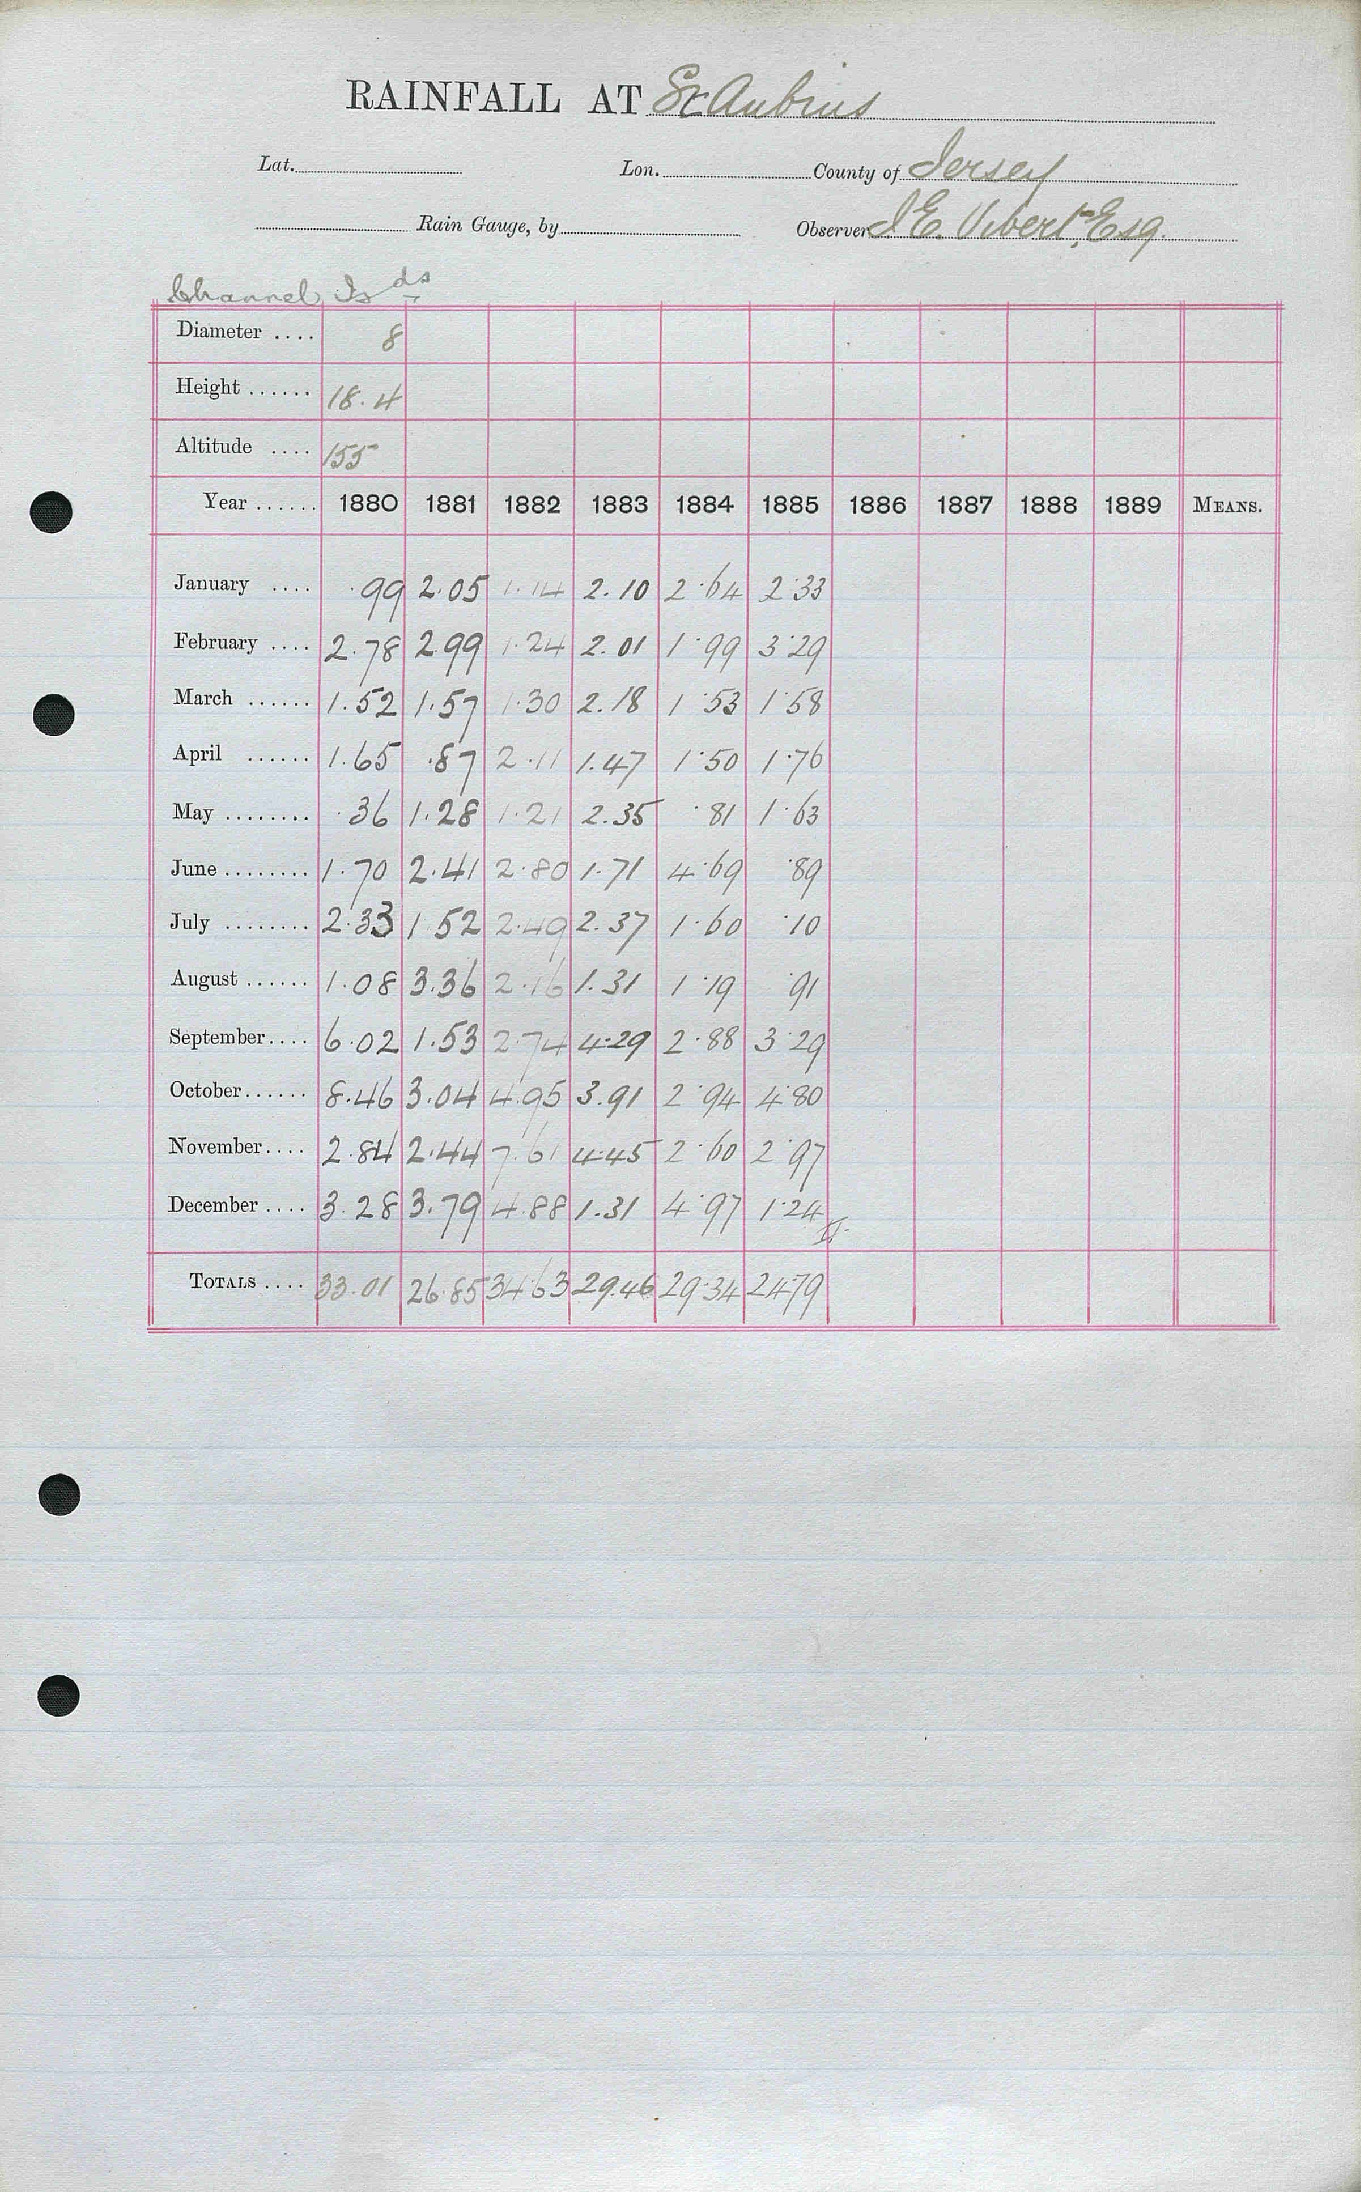 RAINFALL AT St Aubins
Lat. Lon. County of Jersey
Rain Gauge, by Observer J E. Vibert, Esq.
Channel Is ds
Diameter .... 8
Height ...... 18.4
Altitude .... 155
Year ...... 1880 1881 1882 1883 1884 1885 1886 1887 1888 1889 MEANS.
January .... .99 2.05 1.14 2.10 2.64 2.33
February .... 2.78 2.99 1.24 2.01 1.99 3.29
March ...... 1.52 1.57 1.30 2.18 1.53 1.58
April ...... 1.65 .87 2.11 1.47 1.50 1.76
May ........ .36 1.28 1.21 2.35 .81 1.63
June ........ 1.70 2.41 2.80 1.71 4.69 .89
July ........ 2.33 1.52 2.49 2.37 1.60 .10
August ...... 1.08 3.36 2.16 1.31 1.19 .91
September.... 6.02 1.53 2.74 4.29 2.88 3.29
October...... 8.46 3.04 4.95 3.91 2.94 4.80
November.... 2.84 2.44 7.61 4.45 2.60 2.97
December .... 3.28 3.79 4.88 1.31 4.97 1.24
TOTALS .... 33.01 26.85 34.63 29.46 29.34 24.79